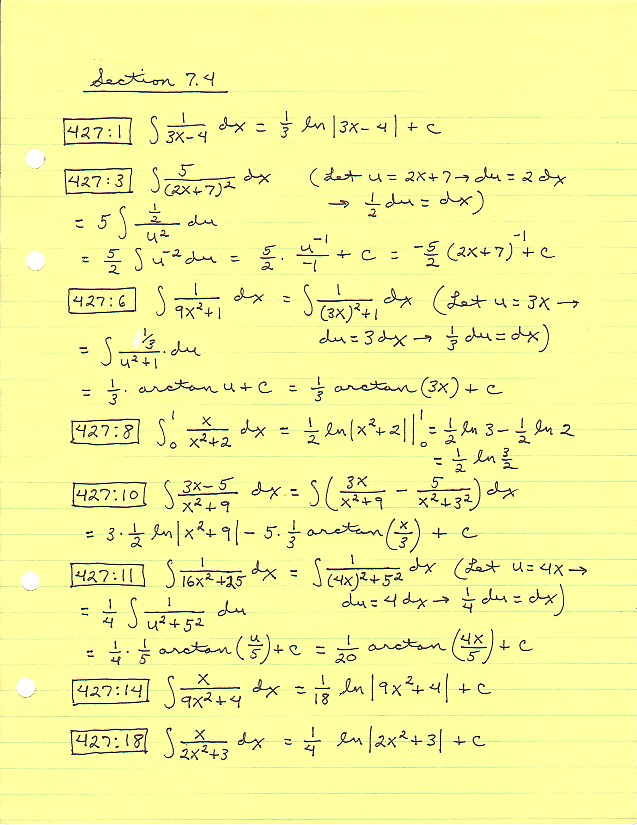 Section 7.4
427:1 ∫ 1/(3x-4) dx = 1/3 ln|3x-4| + c
427:3 ∫ 5/(2x+7)² dx (Let u = 2x+7 → du = 2 dx
→ 1/2 du = dx)
= 5 ∫ (1/2)/u² du
= 5/2 ∫ u⁻² du = 5/2 · u⁻¹/-1 + c = -5/2 (2x+7)⁻¹ + c
427:6 ∫ 1/(9x²+1) dx = ∫ 1/((3x)²+1) dx (Let u = 3x →
du = 3 dx → 1/3 du = dx)
= ∫ (1/3)/(u²+1) · du
= 1/3 · arctan u + c = 1/3 arctan (3x) + c
427:8 ∫₀¹ x/(x²+2) dx = 1/2 ln|x²+2| |₀¹ = 1/2 ln 3 - 1/2 ln 2
= 1/2 ln 3/2
427:10 ∫ (3x-5)/(x²+9) dx = ∫ (3x/(x²+9) - 5/(x²+3²)) dx
= 3 · 1/2 ln|x²+9| - 5 · 1/3 arctan (x/3) + c
427:11 ∫ 1/(16x²+25) dx = ∫ 1/((4x)²+5²) dx (Let u = 4x →
du = 4 dx → 1/4 du = dx)
= 1/4 ∫ 1/(u²+5²) du
= 1/4 · 1/5 arctan (u/5) + c = 1/20 arctan (4x/5) + c
427:14 ∫ x/(9x²+4) dx = 1/18 ln|9x²+4| + c
427:18 ∫ x/(2x²+3) dx = 1/4 ln|2x²+3| + c